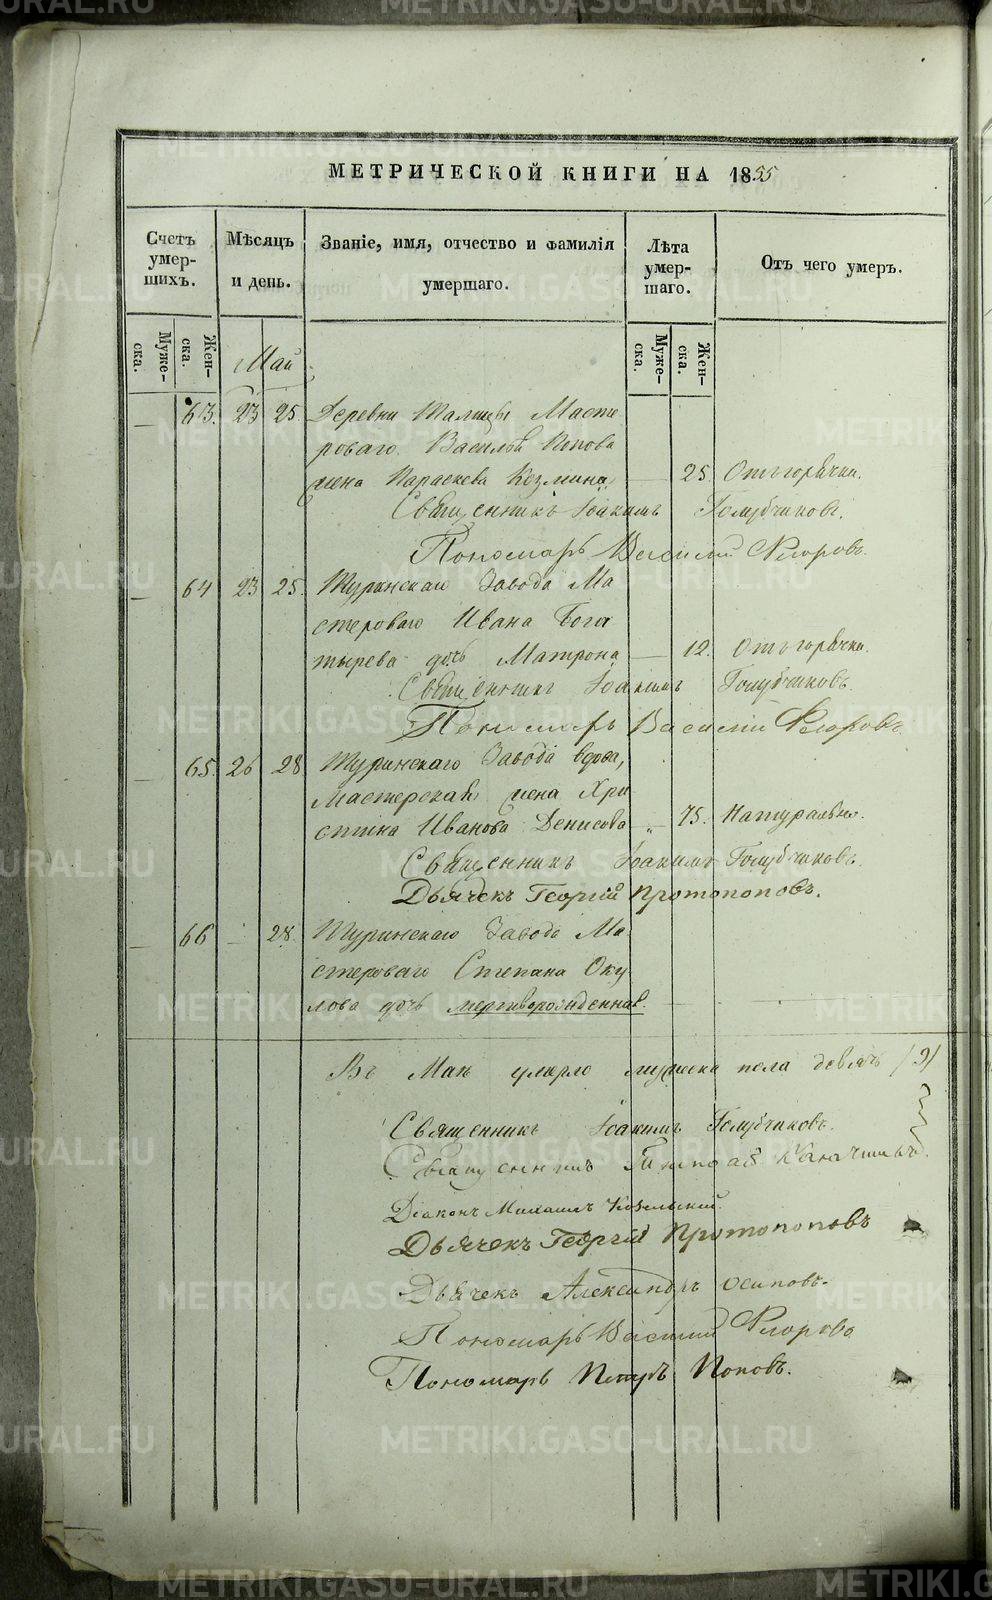 МЕТРИЧЕСКОЙ КНИГИ НА 1855
Счетъ умер-шихъ.
Мѣсяцъ и день.
Званіе, имя, отчество и фамилія умершаго.
Лѣта умер-шаго.
Отъ чего умеръ.
Муже-ска.
Жен-ска.
Муже-ска.
Жен-ска.
Май
63. 23 25 Деревни Талицы Масте
роваго Василья Попова
жена Параскева Козмина — 25. Отъ горячки.
Священникъ Іоакимъ Голубчиковъ.
Пономарь Василий Флоровъ.
— 64 23 25. Туринскаго Завода Ма
стероваго Ивана Бога
тырева дочь Матрона — 12. Отъ горячки.
Священникъ Іоакимъ Голубчиковъ.
Пономарь Василий Флоровъ.
— 65. 26 28 Туринскаго Завода вдова,
Мастерская жена Хри
стина Иванова Денисова „ 75. Натурально.
Священникъ Іоакимъ Голубчиковъ.
Дьячекъ Георгій Протопоповъ.
— 66 — 28. Туринскаго Завода Ма
стероваго Степана Оку
лова дочь мертворожденная.
Въ Маѣ умерло мужска пола девять /9/
Священникъ Іоакимъ Голубчиковъ.
Священникъ
Діаконъ Михаилъ
Дьячекъ Георгій Протопоповъ
Дьячекъ Александръ Осиповъ.
Пономарь Василий Флоровъ
Пономарь Петръ Поповъ.
METRIKI.GASO-URAL.RU